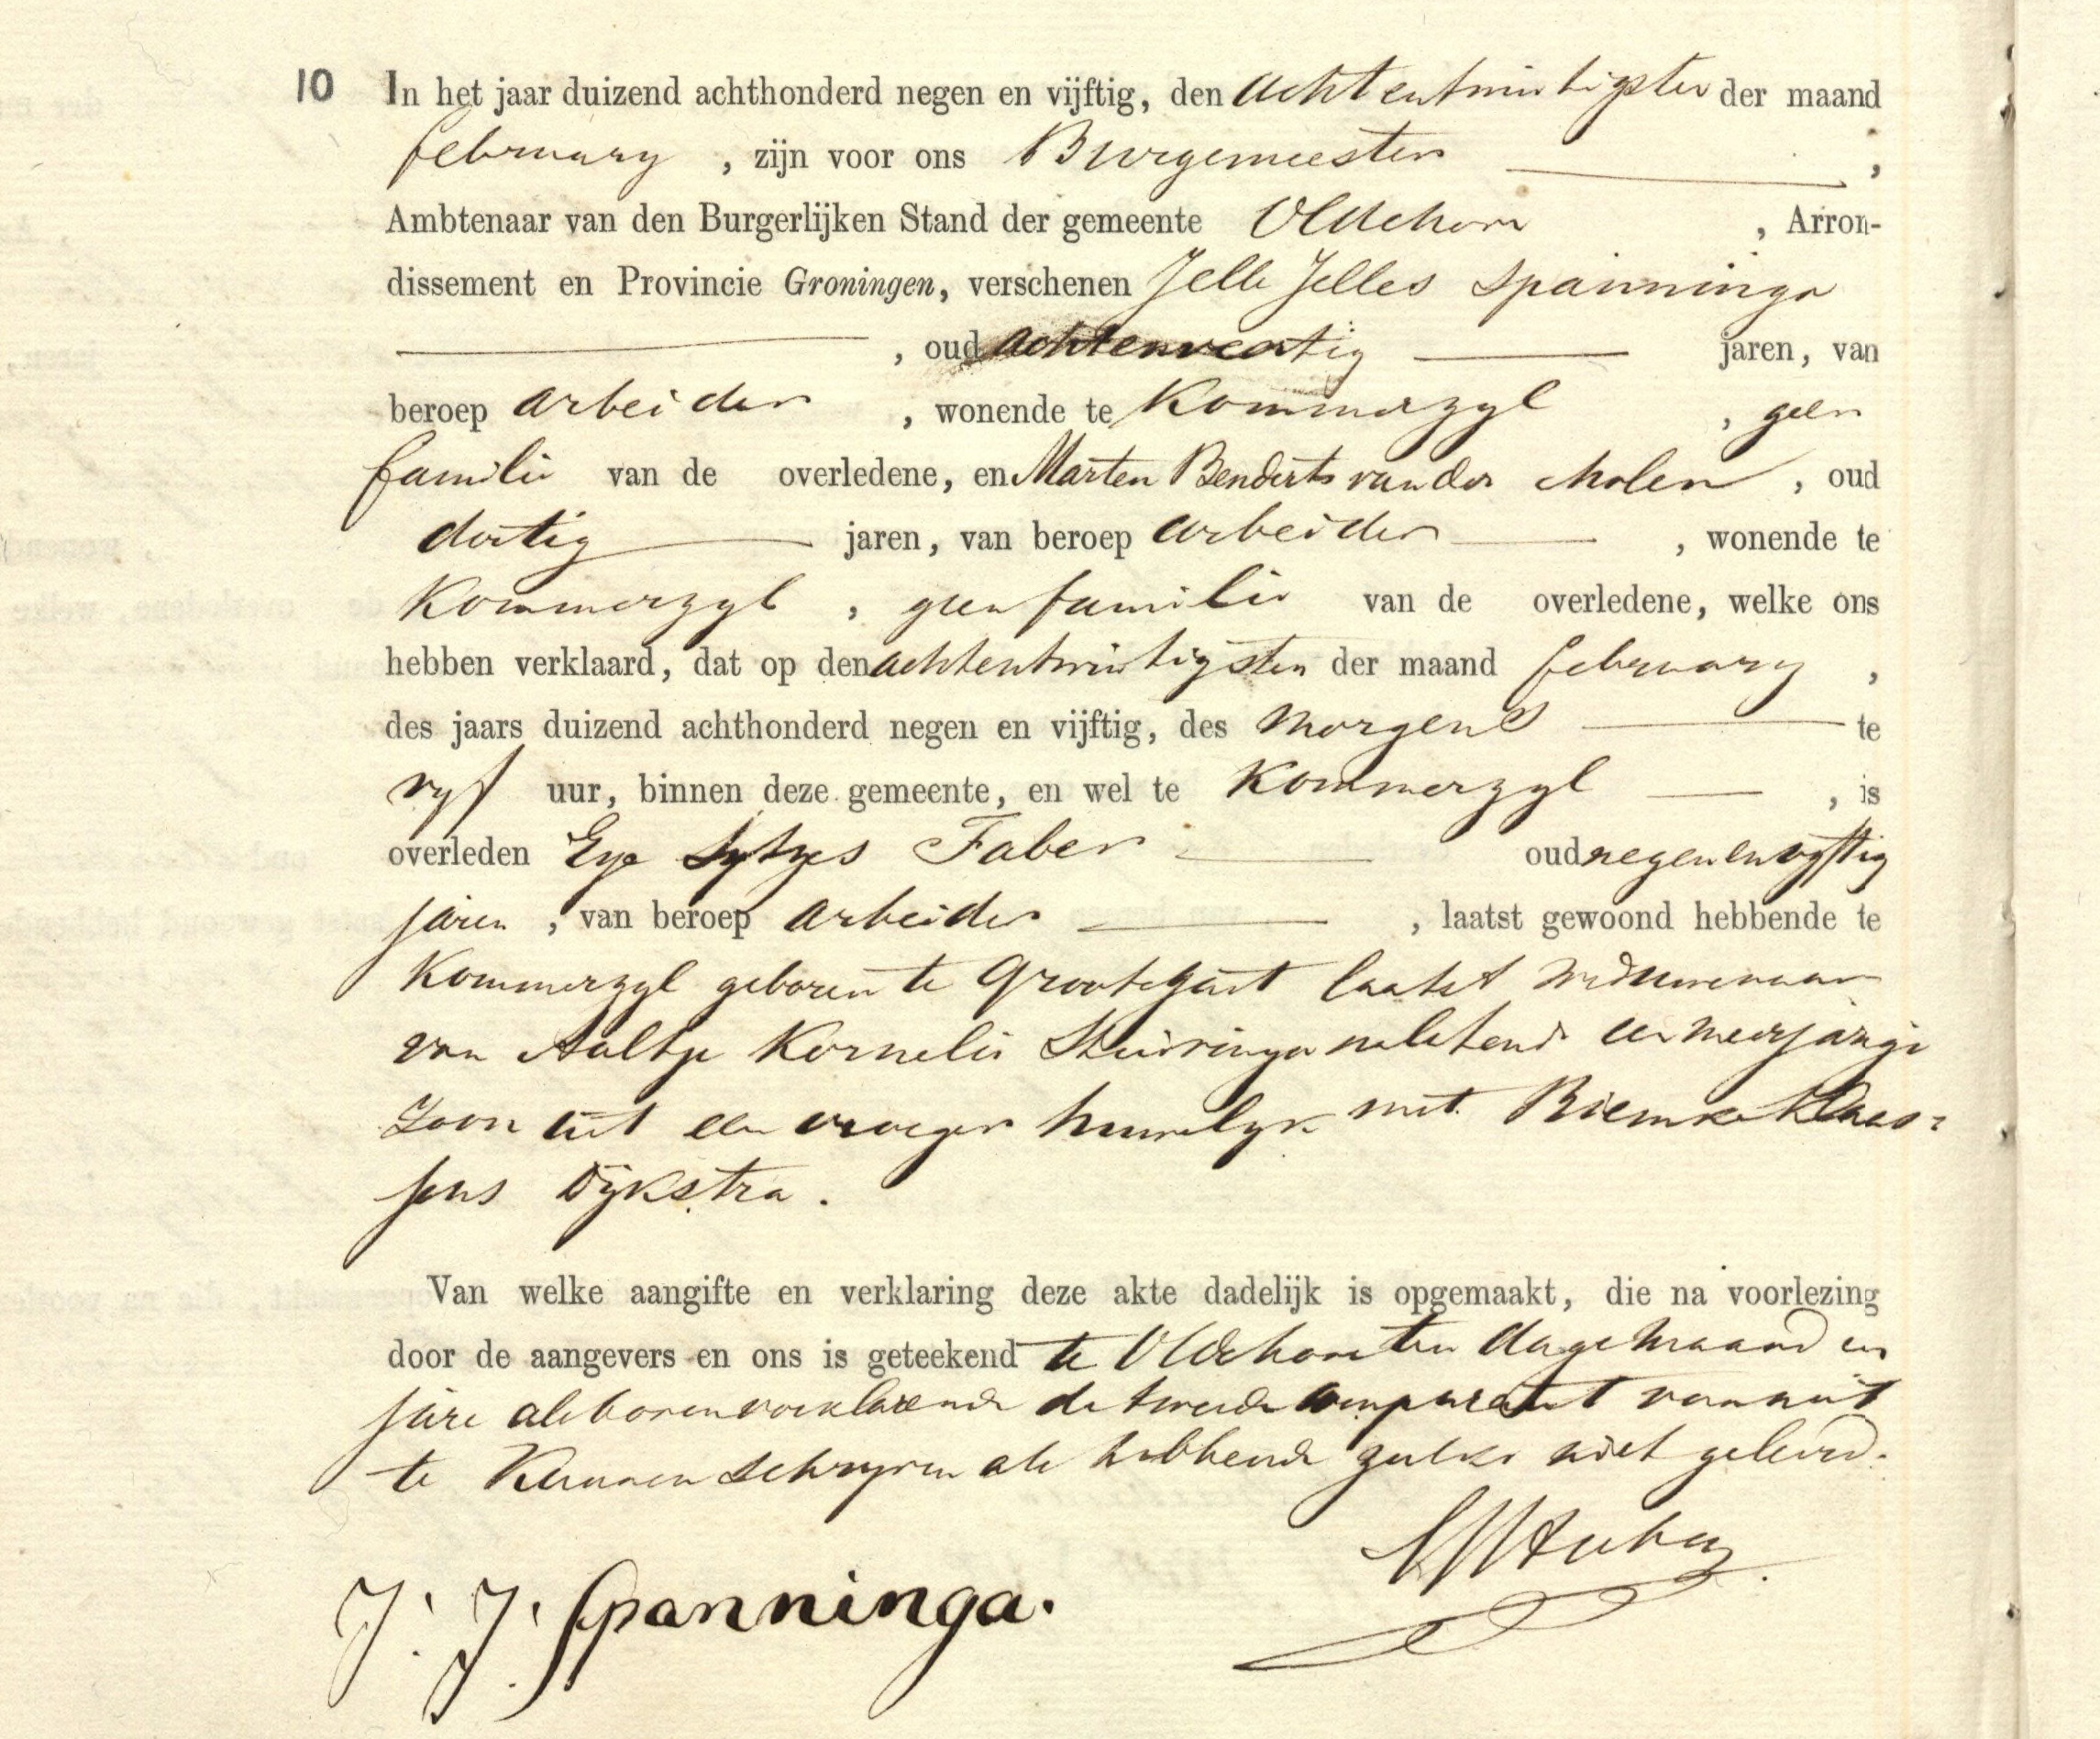 10 In het jaar duizend achthonderd negen en vijftig, den achtentwintigsten der maand
february , zijn voor ons Burgemeester ,
Ambtenaar van den Burgerlijken Stand der gemeente Oldehove , Arron-
dissement en Provincie Groningen, verschenen Jelle Jelles Spanninga
, oud achtenveertig jaren, van
beroep arbeider , wonende te Kommerzyl , geen
familie van de overledene, en Marten Benderts van der Molen , oud
dertig jaren, van beroep arbeider , wonende te
Kommerzyl , geen familie van de overledene, welke ons
hebben verklaard, dat op den achtentwintigsten der maand february ,
des jaars duizend achthonderd negen en vijftig, des morgens te
vyf uur, binnen deze gemeente, en wel te Kommerzyl , is
overleden Eije Sytzes Faber oud negenenvyftig
jaren , van beroep arbeider , laatst gewoond hebbende te
Kommerzyl geboren te Grootegast laatst weduwenaar
van Aaltje Kornelis nalatende een meerjarige
zoon uit een vroeger huwelyk met Riemke Klaas=
sens Dykstra.
Van welke aangifte en verklaring deze akte dadelijk is opgemaakt, die na voorlezing
door de aangevers en ons is geteekend te Oldehove ten dage maand en
jare als boven verklarende de tweede comparant van niet
te kunnen schryven als hebbende zulks niet geleerd.
J. J. Spanninga.